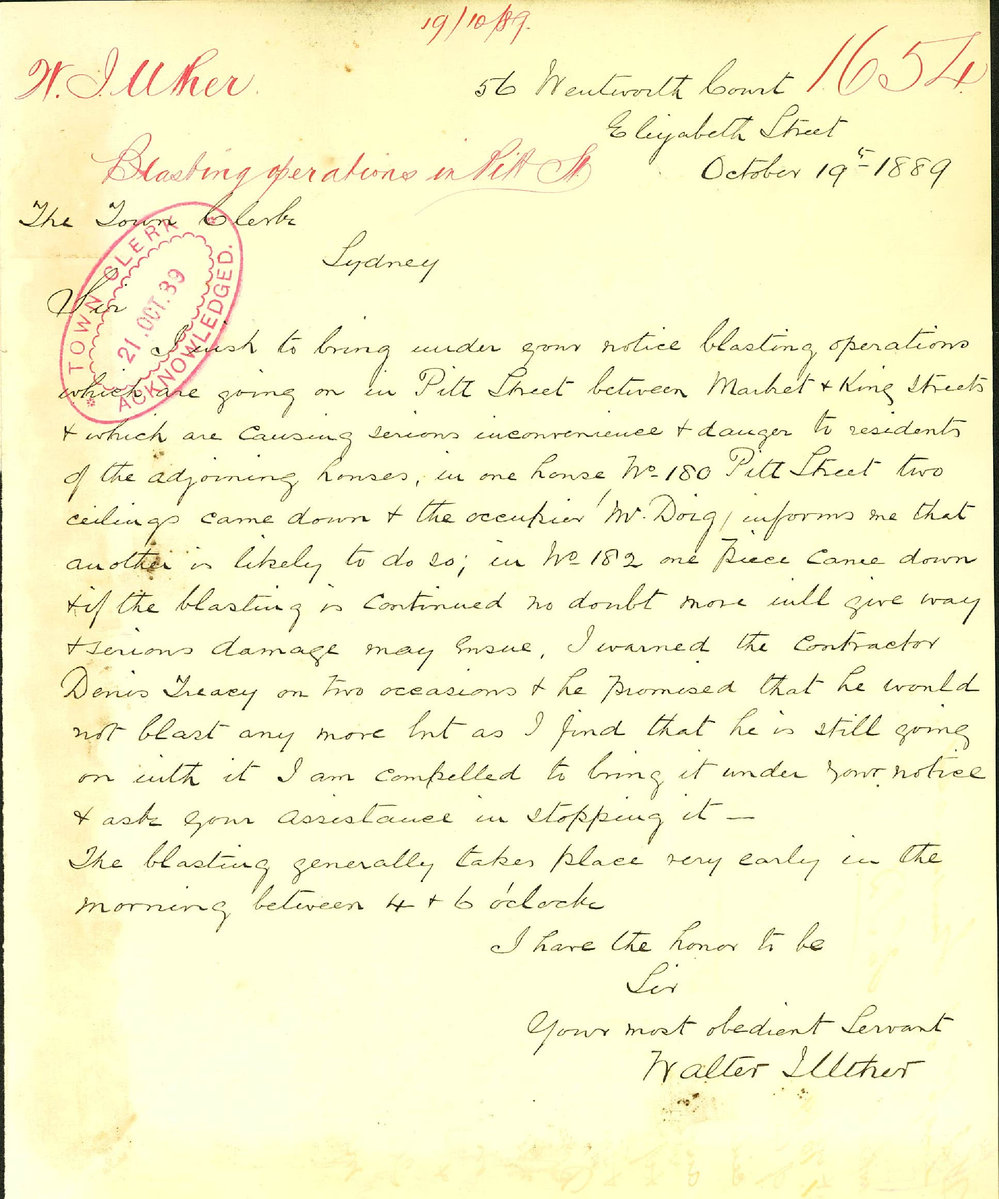 19/10/89.
W. J. Uther.
1654
56 Wentworth Court
Elizabeth Street
Blasting operations in Pitt St.
October 19th 1889
The Town Clerk
Sydney
TOWN CLERK
21. OCT. 89
ACKNOWLEDGED.
Sir
I wish to bring under your notice blasting operations
which are going on in Pitt Street between Market & King Streets
& which are causing serious inconvenience & danger to residents
of the adjoining houses, in one house No. 180 Pitt Street two
ceilings came down & the occupier (Mr. Doig) informs me that
another is likely to do so; in No 182 one piece came down
& if the blasting is continued no doubt more will give way
& serious damage may ensue. I warned the contractor
Denis Treacy on two occasions & he promised that he would
not blast any more but as I find that he is still going
on with it I am compelled to bring it under your notice
& ask your assistance in stopping it —
The blasting generally takes place very early in the
morning between 4 & 6 o'clock
I have the honor to be
Sir
Your most obedient Servant
Walter J Uther